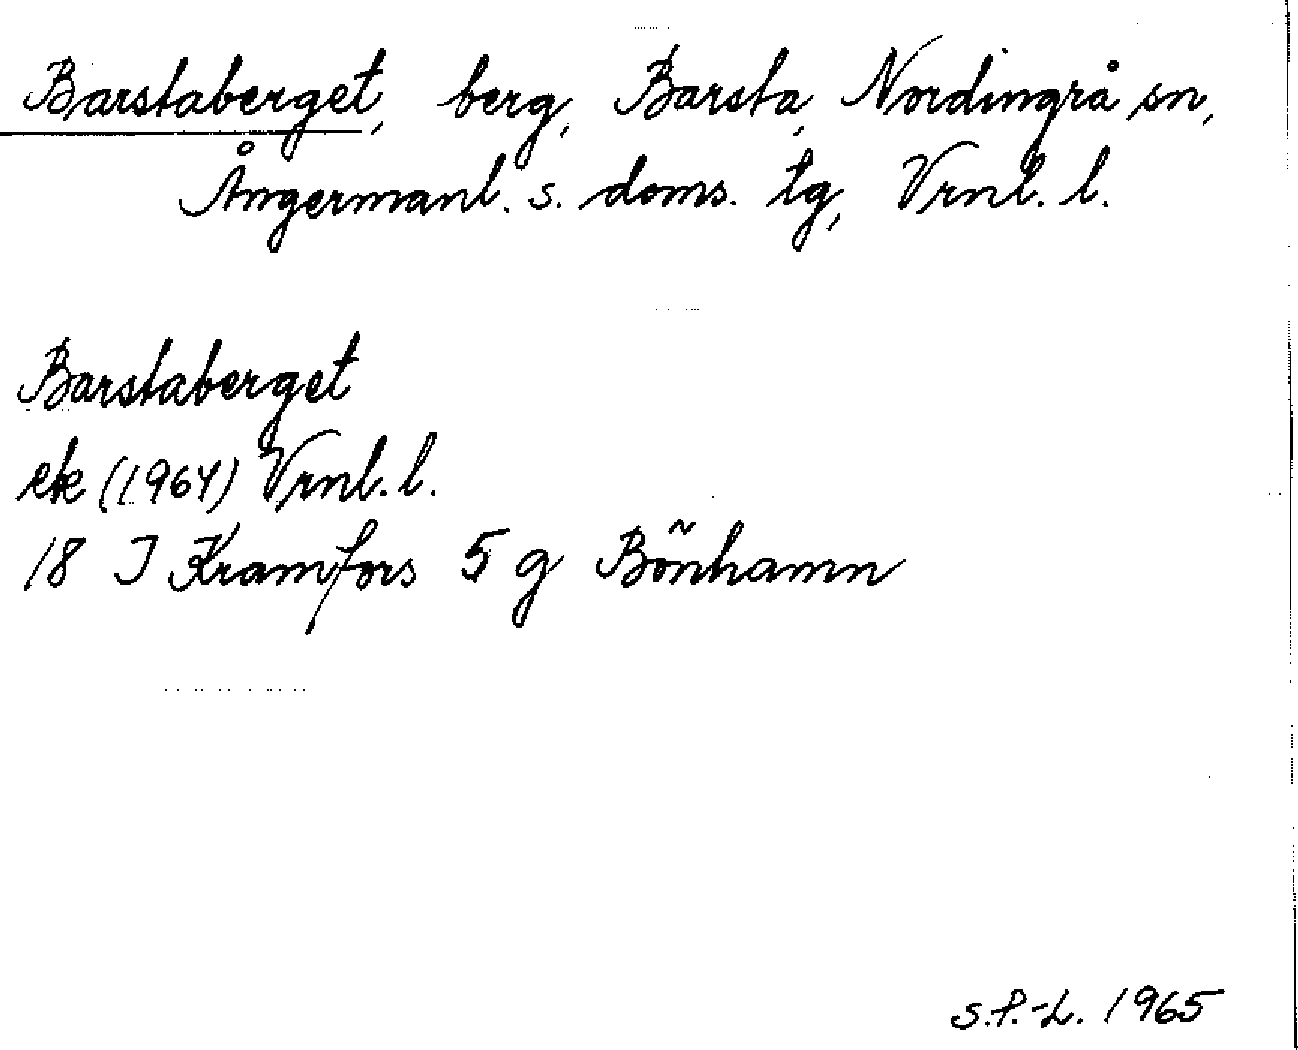 Barstaberget, berg, Barsta, Nordingrå sn,
Ångermanl. s. doms. tg, Vrnl. l.
Barstaberget
ek (1964) Vrnl. l.
18 J Kramfors 5 g Bönhamn
S.P.-L. 1965